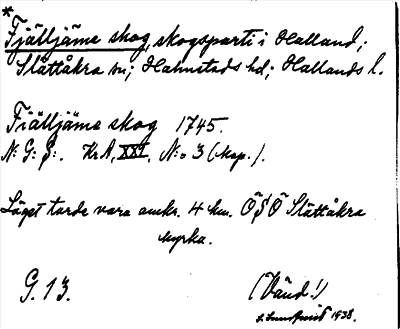 *
Fjälljäme skog, skogsparti i Halland;
Slättåkra sn; Halmstads hd; Hallands l.
Fiälljäme skog 1745.
N: G: S:. Kr A, XXI, N:o 3 (Map.).
Läget torde vara omkr. 4 km. ÖSÖ Slättåkra
kyrka.
G. 13.
(Vänd!)
1938.